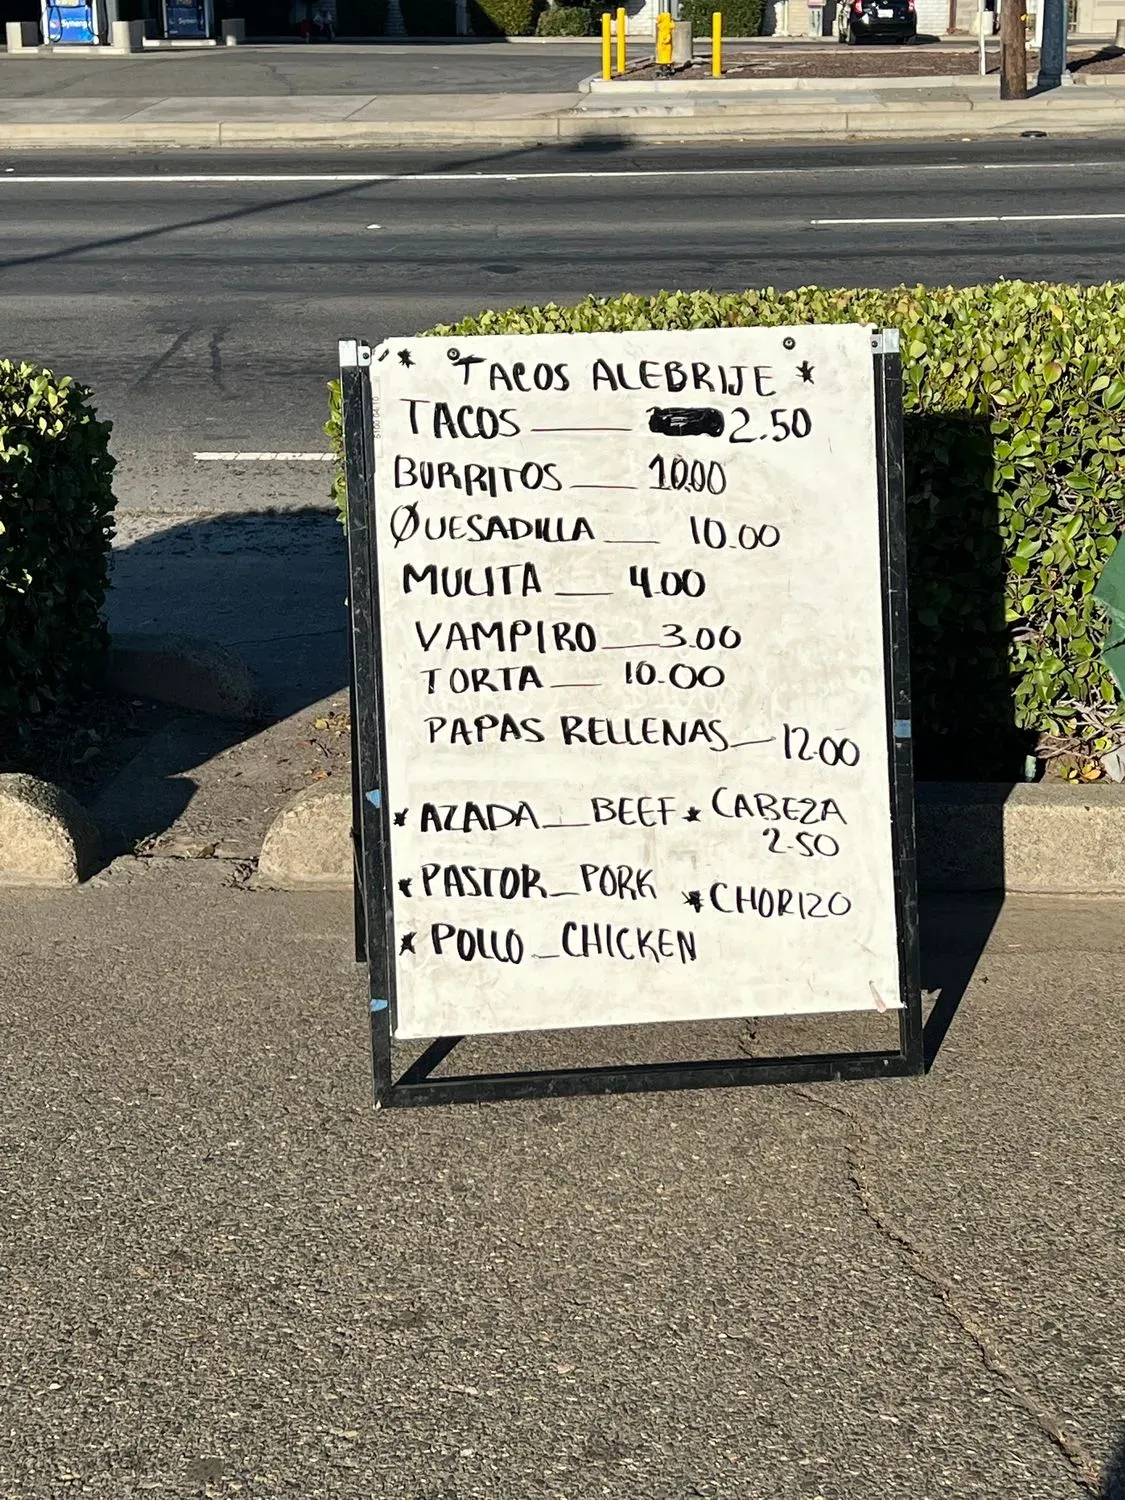 * TACOS ALEBRIJE *
TACOS 2.50
BURRITOS 10.00
QUESADILLA 10.00
MULITA 4.00
VAMPIRO 3.00
TORTA 10.00
PAPAS RELLENAS 12.00
* AZADA BEEF * CABEZA
2.50
* PASTOR PORK
* CHORIZO
* POLLO CHICKEN